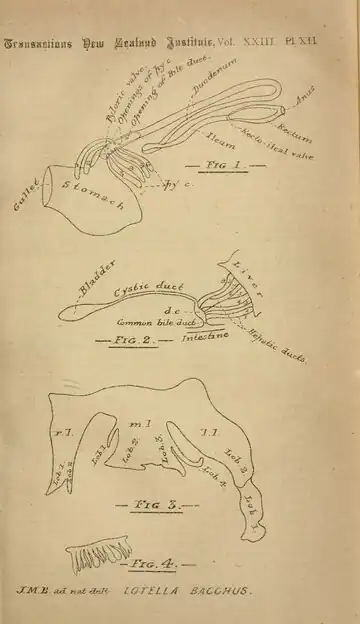 Transactions New Zealand Institute, Vol. XXIII. Pl. XII.
Pyloric valve.
Openings of py. c.
Opening of Bile duct.
Duodenum
Anus
Rectum
Recto. ileal valve
Ileum
FIG 1.
Gullet
Stomach
py c.
Liver
Bladder
Cystic duct
d.c
Common bile duct
Intestine
Hepatic ducts.
FIG. 2.
r.l.
m.l
l.l.
Lob. 1.
Lob 2
Lob 1.
Lob 2.
Lob 3.
Lob 4.
Lob 3
Lob 1.
FIG 3.
FIG. 4.
J.M.B. ad. nat delt. LOTELLA BACCHUS.